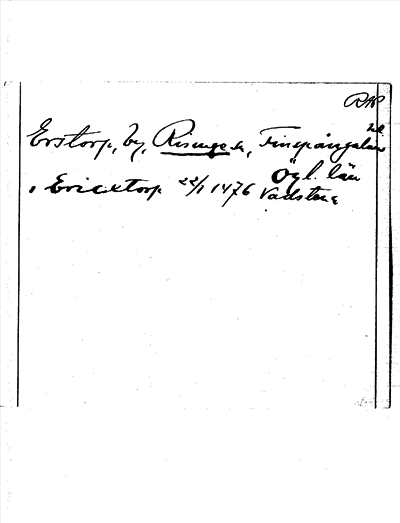 RAP
Erstorp, by, Risinge sn, Finspångaläns hd.
Ögl. län
i Ericxtorp 22/1 1476 Vadstena